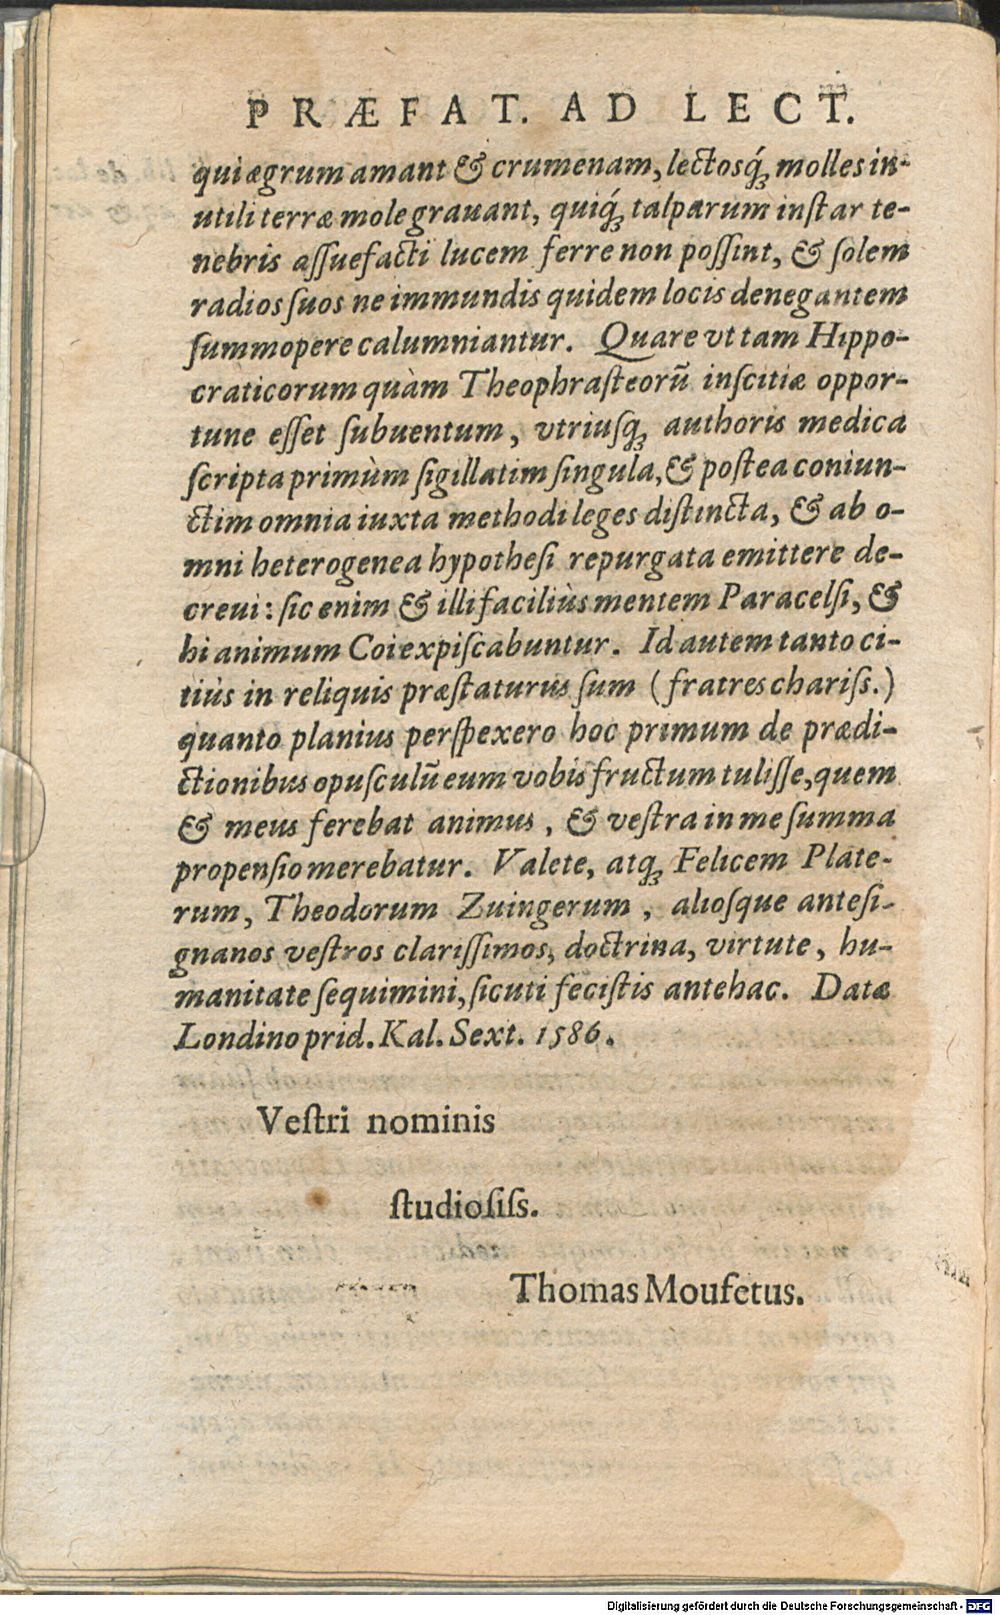 PRÆFAT. AD LECT.
qui ægrum amant & crumenam, lectosq́ꝫ molles in-
utili terræ mole grauant, quiq́ꝫ talparum instar te-
nebris aſſuefacti lucem ferre non poſſint, & ſolem
radios ſuos ne immundis quidem locis denegantem
ſummopere calumniantur. Quare vt tam Hippo-
craticorum quàm Theophraſteorũ inſcitiæ oppor-
tune eſſet ſubuentum, vtriuſqꝫ authoris medica
ſcripta primùm ſigillatim ſingula, & poſtea coniun-
ctim omnia iuxta methodi leges diſtincta, & ab o-
mni heterogenea hypotheſi repurgata emittere de-
creui: ſic enim & illi faciliùs mentem Paracelſi, &
hi animum Coi expiſcabuntur. Id autem tanto ci-
tiùs in reliquis præſtaturus ſum (fratres chariſſ.)
quanto planius perſpexero hoc primum de prædi-
ctionibus opuſculũ eum vobis fructum tuliſſe, quem
& meus ferebat animus, & veſtra in me ſumma
propenſio merebatur. Valete, atqꝫ Felicem Plate-
rum, Theodorum Zuingerum, alioſque anteſi-
gnanos veſtros clariſſimos, doctrina, virtute, hu-
manitate ſequimini, ſicuti feciſtis antehac. Datæ
Londino prid. Kal. Sext. 1586.
Veſtri nominis
ſtudioſiſs.
Thomas Moufetus.
Digitalisierung gefördert durch die Deutsche Forschungsgemeinschaft - DFG